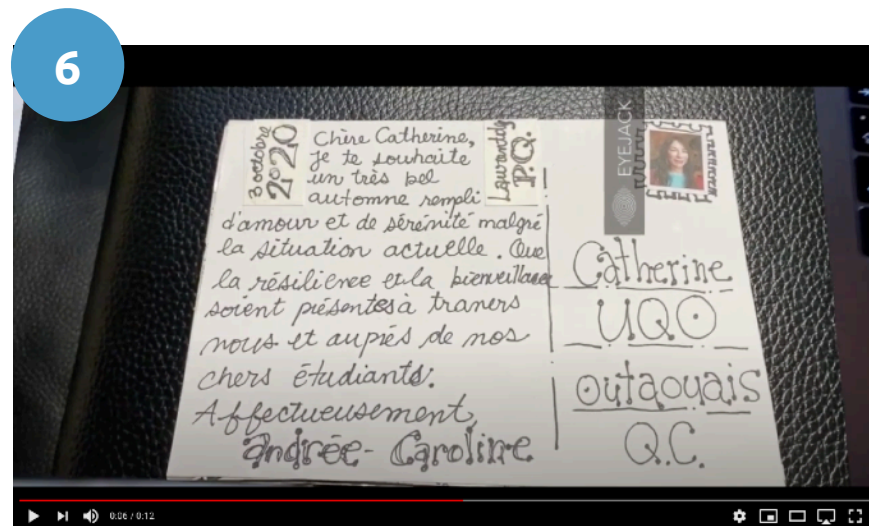 6
3 octobre
2020
Chère Catherine,
je te souhaite
un très bel
automne rempli
P.Q.
d'amour et de sérénité malgré
la situation actuelle. Que
la résilience et la bienveillance
soient présentes à travers
nous et auprès de nos
chers étudiants.
Affectueusement,
Andrée-Caroline
EYEJACK
Catherine
UQO
Outaouais
Q.C.
0:06 / 0:12